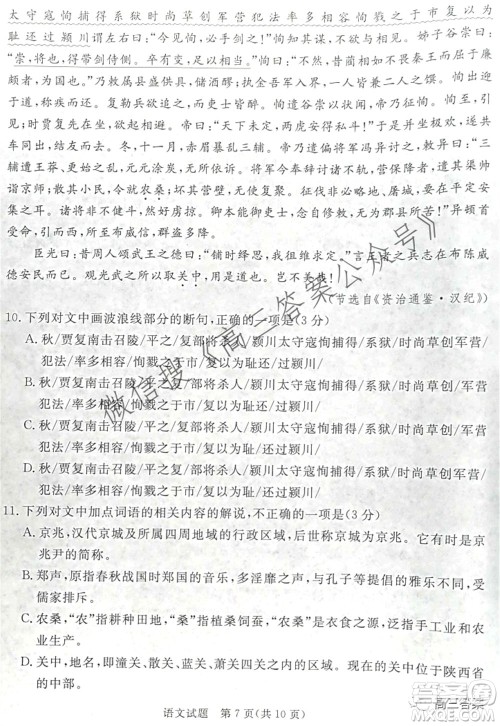 太守寇恂捕得系狱时尚草创军营犯法率多相容恂戮之于市复以为
耻还过颍川谓左右曰：“今见恂，必手剑之！”恂知其谋，不欲与相见。姊子谷崇曰：
“崇，将也，得带剑侍侧。卒有变，足以相当。”恂曰：“不然。昔蔺相如不畏秦王而屈于廉
颇者，为国也。”乃敕属县盛供具，储酒醪；执金吾军入界，一人皆兼二人之馔。恂出迎
于道，称疾而还。复勒兵欲追之，而吏士皆醉。恂遣谷崇以状闻，帝乃征恂。恂至，引
见；时贾复先在坐，欲起相避。帝曰：“天下未定，两虎安得私斗！”于是并坐极欢，遂共
车同出，结友而去。冬，十一月，赤眉暴乱三辅。帝乃遣偏将军冯异代禹讨之，敕异曰：“三
辅遭王莽、更始之乱，元元涂炭，无所依诉。将军今奉辞讨诸不轨，营保降者，遣其渠帅
诣京师；散其小民，令就农桑；坏其营壁，使无复聚。征伐非必略地、屠城，要在平定
安集之耳。诸将非不健斗，然好虏掠。卿本能御吏士，念自修敕，无为郡县所苦！”异顿首
受命，而所至布威信，群盗多降。
臣光曰：昔周人颂武王之德曰：“铺时绎思，我徂惟求定。”言王者之兵志在布陈威
德安民而已。观光武之所以取关中，用是道也。岂不美哉！
（节选自《资治通鉴·汉纪》）
10. 下列对文中画波浪线部分的断句，正确的一项是（3 分）
A. 秋/贾复南击召陵/平之/复部将杀人/颍川太守寇恂捕得/系狱/时尚草创军营
犯法/率多相容/恂戮之于市/复以为耻还/过颍川/
B. 秋/贾复南击召陵/平之/复部将杀人/颍川太守寇恂捕得/系狱时/尚草创/军营
犯法/率多相容/恂戮之于市/复以为耻/还过颍川/
C. 秋/贾复南击召陵/平之/复部将杀人/颍川太守寇恂捕得/系狱/时尚草创/军营
犯法/率多相容/恂戮之于市/复以为耻/还过颍川/
D. 秋/贾复南击召陵/平之/复部将杀人/颍川太守寇恂捕得/系狱/时尚草创/军营
犯法/率多相容/恂戮之于市/复以为耻还/过颍川/
11. 下列对文中加点词语的相关内容的解说，不正确的一项是（3 分）
A. 京兆，汉代京城及其所属四周地域的行政区域，京兆为京城的官员，京兆是京
兆尹的简称。
B. 郑声，原指春秋战国时郑国的音乐，多淫靡之声，与孔子等提倡的雅乐不同，受
儒家排斥。
C. 农桑，“农”指耕种田地，“桑”指植桑饲蚕，“农桑”是衣食之源，泛指手工业和农
业生产。
D. 关中，即指潼关、散关、蓝关、萧关四关之内的区域。现在的关中位于陕西省
的中部。
语文试题 第 7 页（共 10 页）
微信搜《高三答案公众号》
高三答案